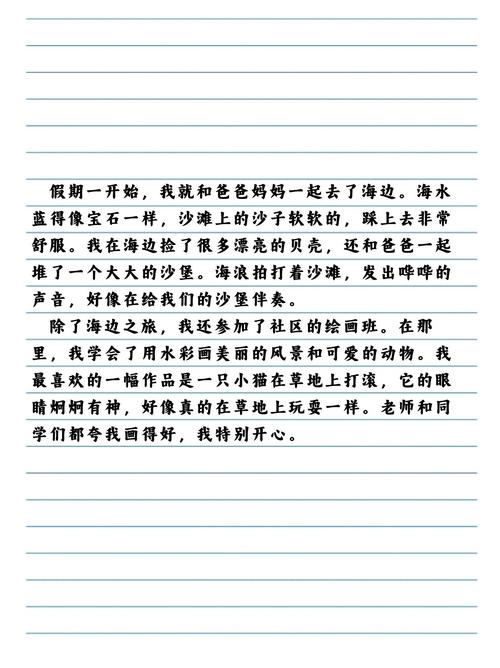 假期一开始，我就和爸爸妈妈一起去了海边。海水
蓝得像宝石一样，沙滩上的沙子软软的，踩上去非常
舒服。我在海边捡了很多漂亮的贝壳，还和爸爸一起
堆了一个大大的沙堡。海浪拍打着沙滩，发出哗哗的
声音，好像在给我们的沙堡伴奏。
除了海边之旅，我还参加了社区的绘画班。在那
里，我学会了用水彩画美丽的风景和可爱的动物。我
最喜欢的一幅作品是一只小猫在草地上打滚，它的眼
睛炯炯有神，好像真的在草地上玩耍一样。老师和同
学们都夸我画得好，我特别开心。